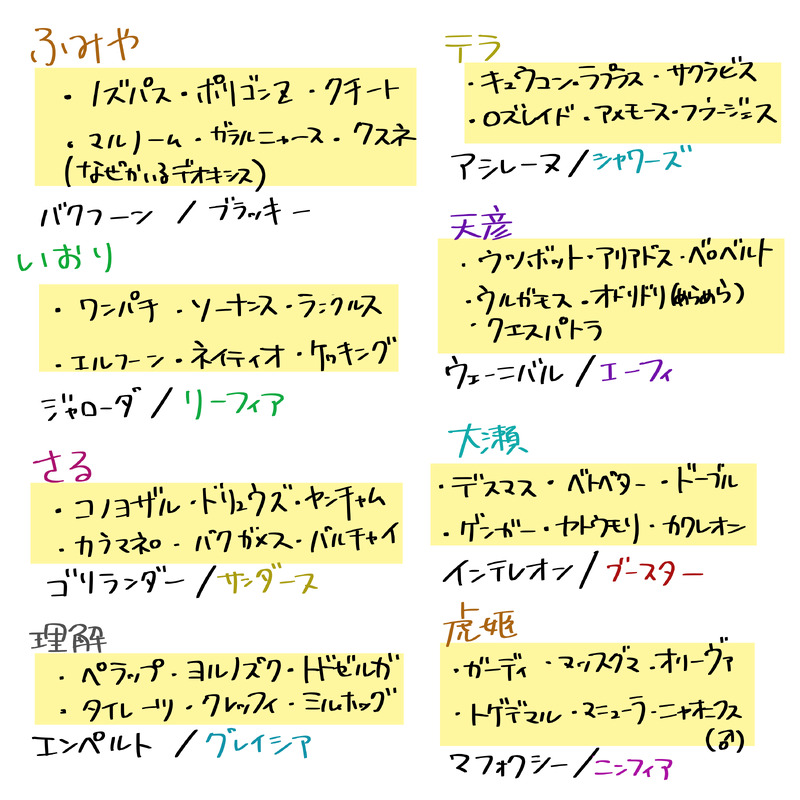 ふみや
・ノズパス・ポリゴンZ・クチート
・マルノーム・ガラルニャース・クスネ
(なぜかいるデオキシス)
バクフーン / ブラッキー
いおり
・ワンパチ・ソーナンス・ランクルス
・エルフーン・ネイティオ・ケッキング
ジャローダ / リーフィア
さる
・コノヨザル・ドリュウズ・ヤンチャム
・カラマネロ・バクガメス・バルチャイ
ゴリランダー / サンダース
理解
・ペラップ・ヨルノズク・トドゼルガ
・タイレーツ・クレッフィ・ミルホッグ
エンペルト / グレイシア
テラ
・キュウコン・ラプラス・サクラビス
・ロズレイド・アメモース・フラージェス
アシレーヌ / シャワーズ
天彦
・ウツボット・アリアドス・ベロベルト
・ウルガモス・オドリドリ(めらめら)
・クエスパトラ
ウェーニバル / エーフィ
大瀬
・デスマス・ベトベター・ドーブル
・ゲンガー・ヤトウモリ・カクレオン
インテレオン / ブースター
虎姫
・ガーディ・マッスグマ・オリーヴァ
・トゲデマル・マニューラ・ニャオニクス
(♂)
マフォクシー / ニンフィア